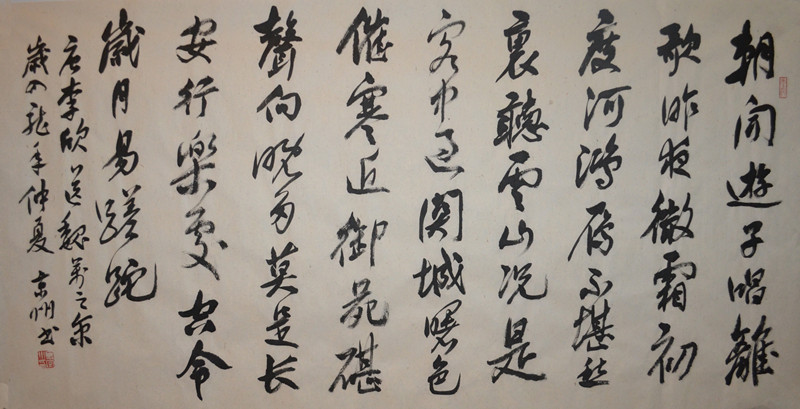 朝聞遊子唱離
歌昨夜微霜初
度河鴻雁不堪愁
裏聽雲山況是
客中過關城曙色
催寒近御苑碪
聲向晚多莫是长
安行樂處空令
歲月易蹉跎
唐李欣送魏萬之京
歲次龍年仲夏 京州书